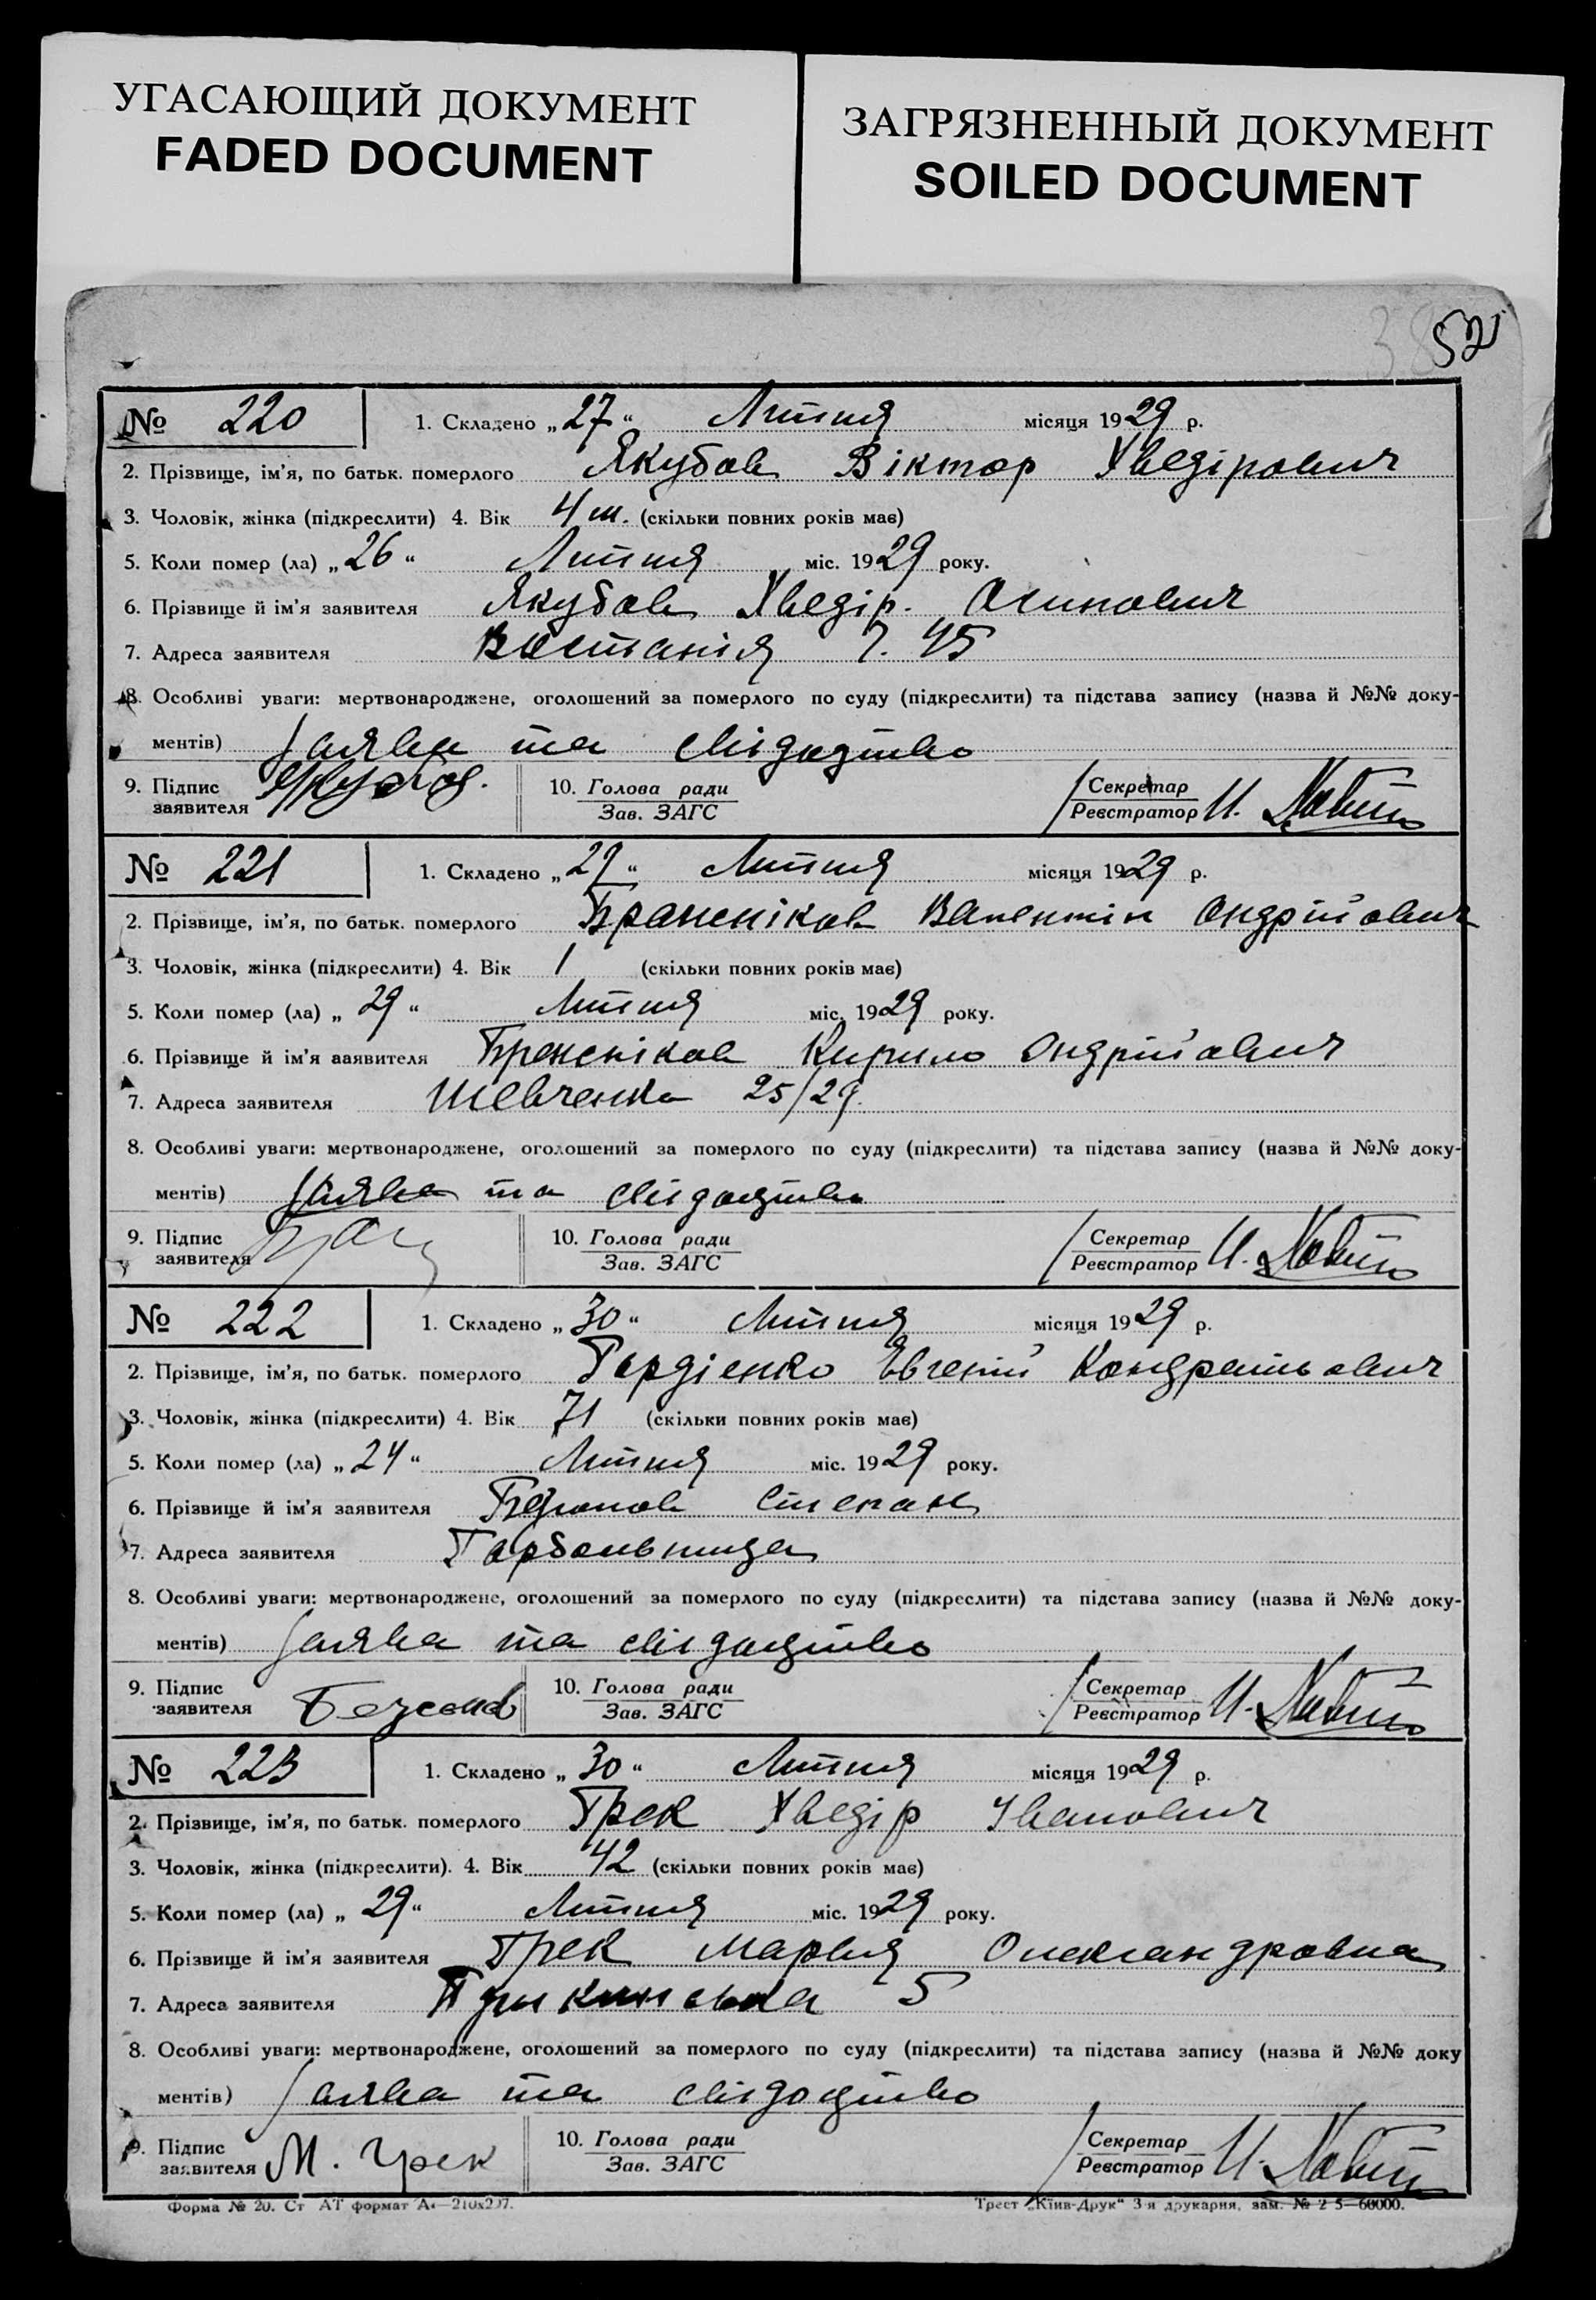 УГАСАЮЩИЙ ДОКУМЕНТ
FADED DOCUMENT
ЗАГРЯЗНЕННЫЙ ДОКУМЕНТ
SOILED DOCUMENT
№ 220 1. Складено „27“ Липня місяця 1929 р.
2. Прізвище, ім'я, по батьк. померлого Якубов Віктор Хведірович
3. Чоловік, жінка (підкреслити) 4. Вік 4 м. (скільки повних років має)
5. Коли помер (ла) „26“ Липня міс. 1929 року.
6. Прізвище й ім'я заявителя Якубов Хведір. Осипович
7. Адреса заявителя Востанія 7. 45
8. Особливі уваги: мертвонароджене, оголошений за померлого по суду (підкреслити) та підстава запису (назва й №№ доку-
ментів) Заява та свідоцтво
9. Підпис заявителя 10. Голова ради Зав. ЗАГС Секретар Реєстратор И.
№ 221 1. Складено „29“ Липня місяця 1929 р.
2. Прізвище, ім'я, по батьк. померлого Валентін Ондрійович
3. Чоловік, жінка (підкреслити) 4. Вік 1 (скільки повних років має)
5. Коли помер (ла) „29“ Липня міс. 1929 року.
6. Прізвище й ім'я заявителя Кирило Ондрійович
7. Адреса заявителя Шевченка 25/29.
8. Особливі уваги: мертвонароджене, оголошений за померлого по суду (підкреслити) та підстава запису (назва й №№ доку-
ментів) Заява та свідоцтво
9. Підпис заявителя 10. Голова ради Зав. ЗАГС Секретар Реєстратор И.
№ 222 1. Складено „30“ Липня місяця 1929 р.
2. Прізвище, ім'я, по батьк. померлого Гордієнко Євгеній Кондратьович
3. Чоловік, жінка (підкреслити) 4. Вік 71 (скільки повних років має)
5. Коли помер (ла) „24“ Липня міс. 1929 року.
6. Прізвище й ім'я заявителя Степан
7. Адреса заявителя
8. Особливі уваги: мертвонароджене, оголошений за померлого по суду (підкреслити) та підстава запису (назва й №№ доку-
ментів) Заява та свідоцтво
9. Підпис заявителя 10. Голова ради Зав. ЗАГС Секретар Реєстратор И.
№ 223 1. Складено „30“ Липня місяця 1929 р.
2. Прізвище, ім'я, по батьк. померлого Грек Хведір Іванович
3. Чоловік, жінка (підкреслити). 4. Вік 42 (скільки повних років має)
5. Коли помер (ла) „29“ Липня міс. 1929 року.
6. Прізвище й ім'я заявителя Грек Марья Олександровна
7. Адреса заявителя 5
8. Особливі уваги: мертвонароджене, оголошений за померлого по суду (підкреслити) та підстава запису (назва й №№ доку
ментів) Заява та свідоцтво
9. Підпис заявителя М. Грек 10. Голова ради Зав. ЗАГС Секретар Реєстратор И.
Форма № 20. Ст АТ формат А4—210x297. Трест „Київ-Друк“ 3-я друкарня, зам. № 2 5—60000.